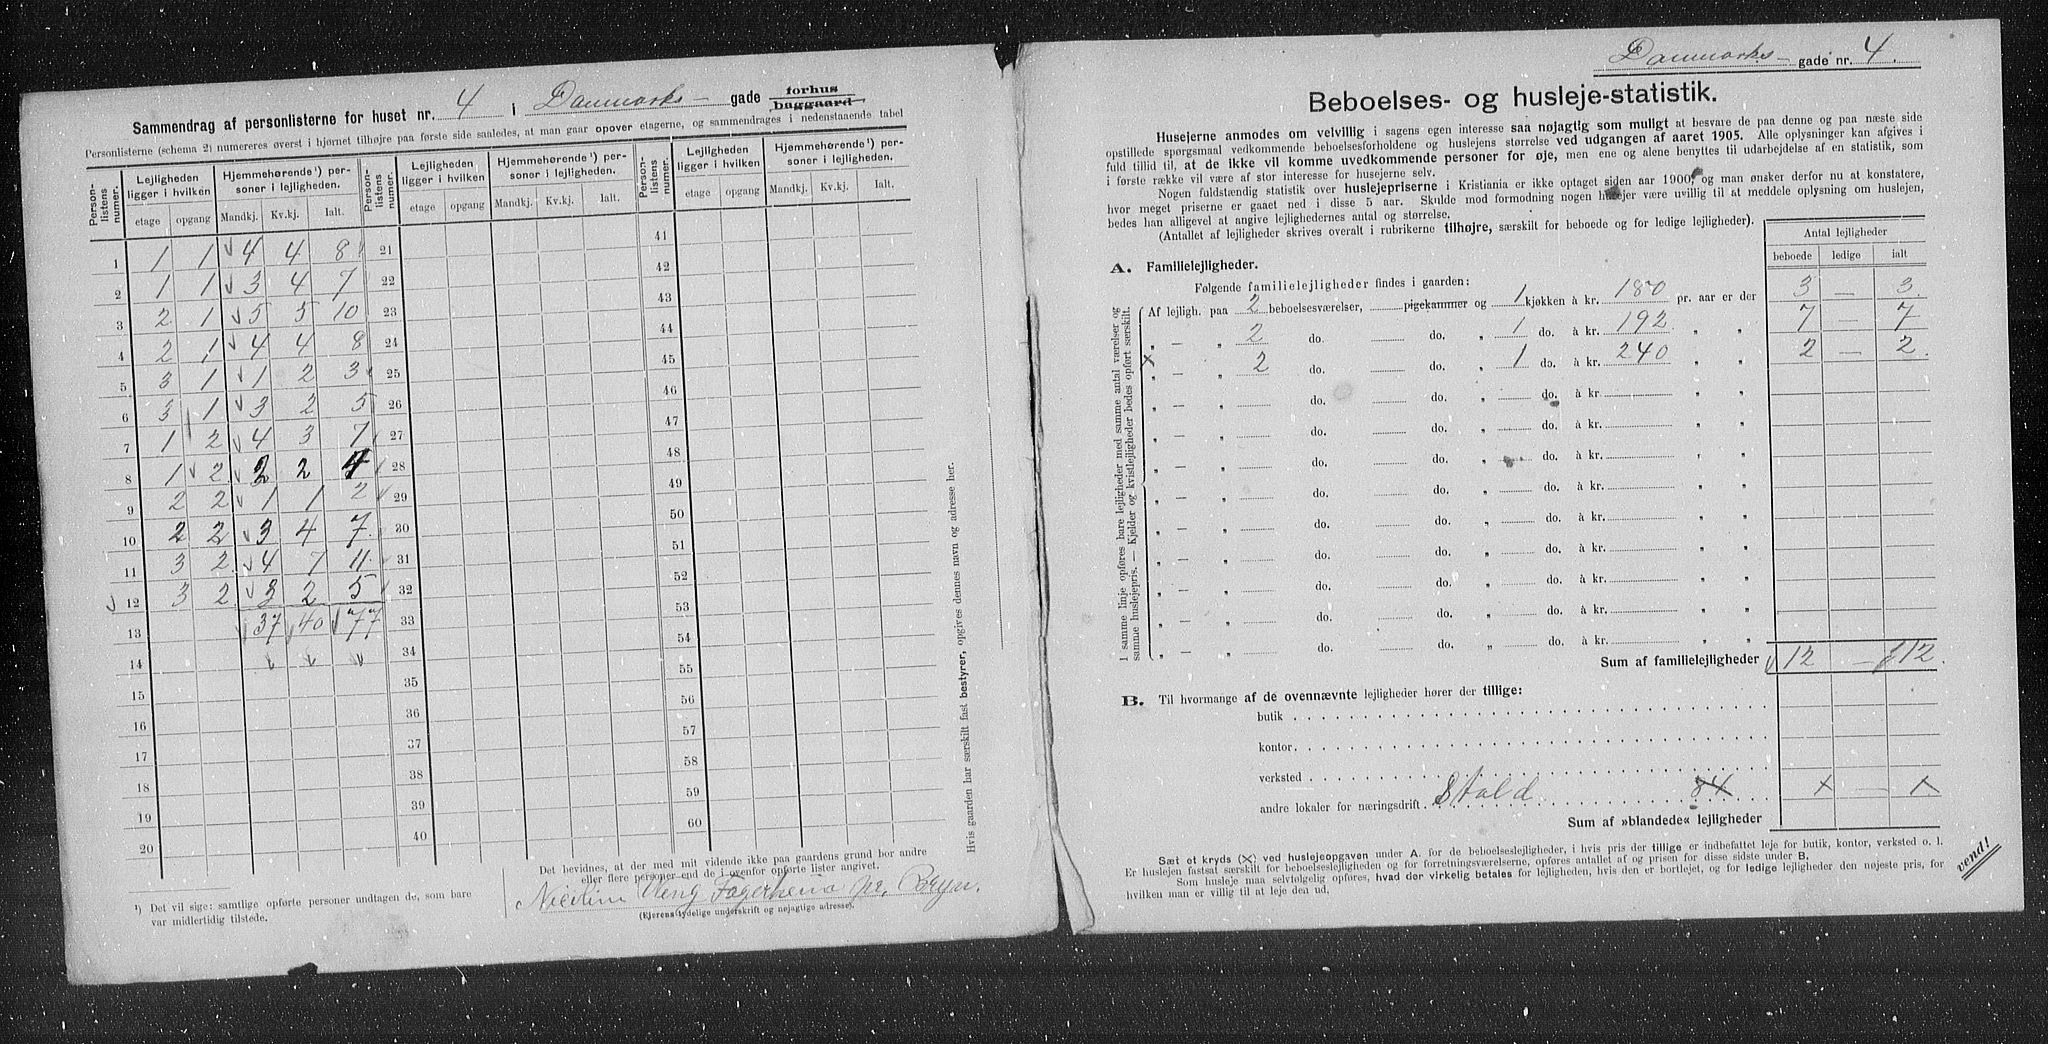 Sammendrag af personlisterne for huset nr. 4 i Danmarks- gade forhus
baggaard
Personlisterne (schema 2) numereres øverst i hjørnet tilhøjre paa første side saaledes, at man gaar opover etagerne, og sammendrages i nedenstaaende tabel
Person-listens numer. Lejligheden ligger i hvilken Hjemmehørende¹) personer i lejligheden. Person-listens numer. Lejligheden ligger i hvilken Hjemmehørende¹) personer i lejligheden. Person-listens numer. Lejligheden ligger i hvilken Hjemmehørende¹) personer i lejligheden.
etage opgang Mandkj. Kv.kj. Ialt. etage opgang Mandkj. Kv.kj. Ialt. etage opgang Mandkj. Kv.kj. Ialt.
1 1 1 4 4 8 21 41
2 1 1 3 4 7 22 42
3 2 1 5 5 10 23 43
4 2 1 4 4 8 24 44
5 3 1 1 2 3 25 45
6 3 1 3 2 5 26 46
7 1 2 4 3 7 27 47
8 1 2 2 2 4 28 48
9 2 2 1 1 2 29 49
10 2 2 3 4 7 30 50
11 3 2 4 7 11 31 51
12 3 2 3 2 5 32 52
13 37 40 77 33 53
14 34 54
15 35 55
16 36 56
17 37 57
18 38 58
19 39 59
20 40 60
Hvis gaarden har særskilt fast bestyrer, opgives dennes navn og adresse her.
¹) Det vil sige: samtlige opførte personer undtagen de, som bare
var midlertidig tilstede.
Det bevidnes, at der med mit vidende ikke paa gaardens grund bor andre
eller flere personer end de i ovenfor opførte lister angivet.
Fagerheim pr. Bryn.
(Ejerens tydelige underskrift og nøjagtige adresse).
Danmarks- gade nr. 4.
Beboelses- og husleje-statistik.
Husejerne anmodes om velvillig i sagens egen interesse saa nøjagtig som muligt at besvare de paa denne og paa næste side
opstillede spørgsmaal vedkommende beboelsesforholdene og huslejens størrelse ved udgangen af aaret 1905. Alle oplysninger kan afgives i
fuld tillid til, at de ikke vil komme uvedkommende personer for øje, men ene og alene benyttes til udarbejdelse af en statistik, som
i første række vil være af stor interesse for husejerne selv.
Nogen fuldstændig statistik over huslejepriserne i Kristiania er ikke optaget siden aar 1900, og man ønsker derfor nu at konstatere,
hvor meget priserne er gaaet ned i disse 5 aar. Skulde mod formodning nogen husejer være uvillig til at meddele oplysning om huslejen,
bedes han alligevel at angive lejlighedernes antal og størrelse.
(Antallet af lejligheder skrives overalt i rubrikerne tilhøjre, særskilt for beboede og for ledige lejligheder).
Antal lejligheder
beboede ledige ialt
A. Familielejligheder.
Følgende familielejligheder findes i gaarden:
I samme linje opføres bare lejligheder med samme antal værelser og
samme huslejepris. — Kjelder og kvistlejligheder bedes opført særskilt.
Af lejligh. paa 2 beboelsesværelser, pigekammer og 1 kjøkken à kr. 180 pr. aar er der 3 — 3.
„ — „ 2 do. do. „ 1 do. à kr. 192 „ „ 7 — 7
× „ — „ 2 do. do. „ 1 do. à kr. 240 „ „ 2 — 2.
„ — „ do. do. „ do. à kr. „ „
„ — „ do. do. „ do. à kr. „ „
„ — „ do. do. „ do. à kr. „ „
„ — „ do. do. „ do. à kr. „ „
„ — „ do. do. „ do. à kr. „ „
„ — „ do. do. „ do. à kr. „ „
„ — „ do. do. „ do. à kr. „ „
„ — „ do. do. „ do. à kr. „ „
„ — „ do. do. „ do. à kr. „ „
Sum af familielejligheder 12 — 12.
B. Til hvormange af de ovennævnte lejligheder hører der tillige:
butik
kontor
verksted
andre lokaler for næringsdrift Stald 84 × — ×
Sum af »blandede« lejligheder
Sæt et kryds (×) ved huslejeopgaven under A. for de beboelseslejligheder, i hvis pris der tillige er indbefattet leje for butik, kontor, verksted o. l.
Er huslejen fastsat særskilt for beboelseslejligheden og for forretningsværelserne, opføres antallet af og prisen for disse sidste under B.
Som husleje maa selvfølgelig opføres, hvad der virkelig betales for lejligheden, hvis den er bortlejet, og for ledige lejligheder den nøjeste pris, for
hvilken man er villig til at leje den ud.
vend!